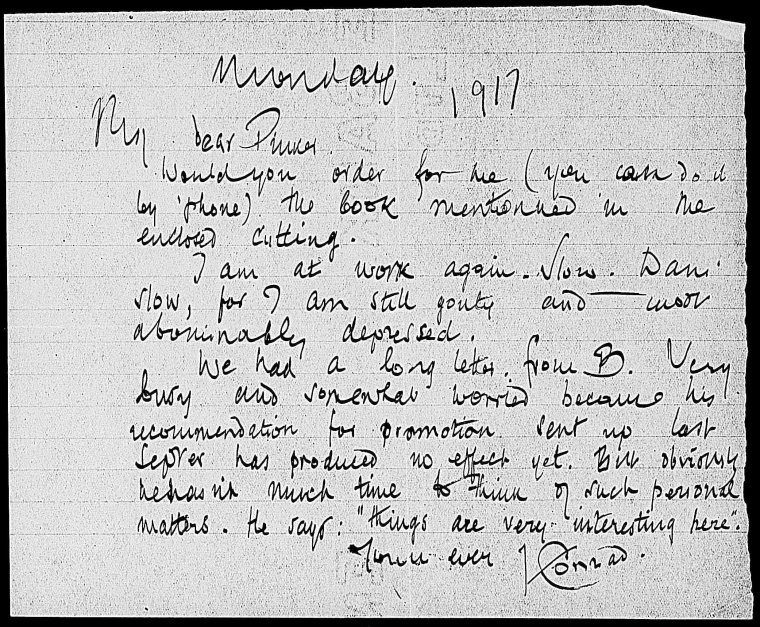 Monday. 1917
My dear Pinker.
Would you order for me (you can do it
by 'phone) the book mentionned in the
enclosed cutting.
I am at work again. Slow. Damn
slow, for I am still gouty and — most
abominably depressed.
We had a long letter from B. Very
busy and somewhat worried because his
recommendation for promotion sent up last
Septer has produced no effect yet. But obviously
he hasn't much time to think of such personal
matters. He says: "things are very interesting here".
Yours ever J Conrad.